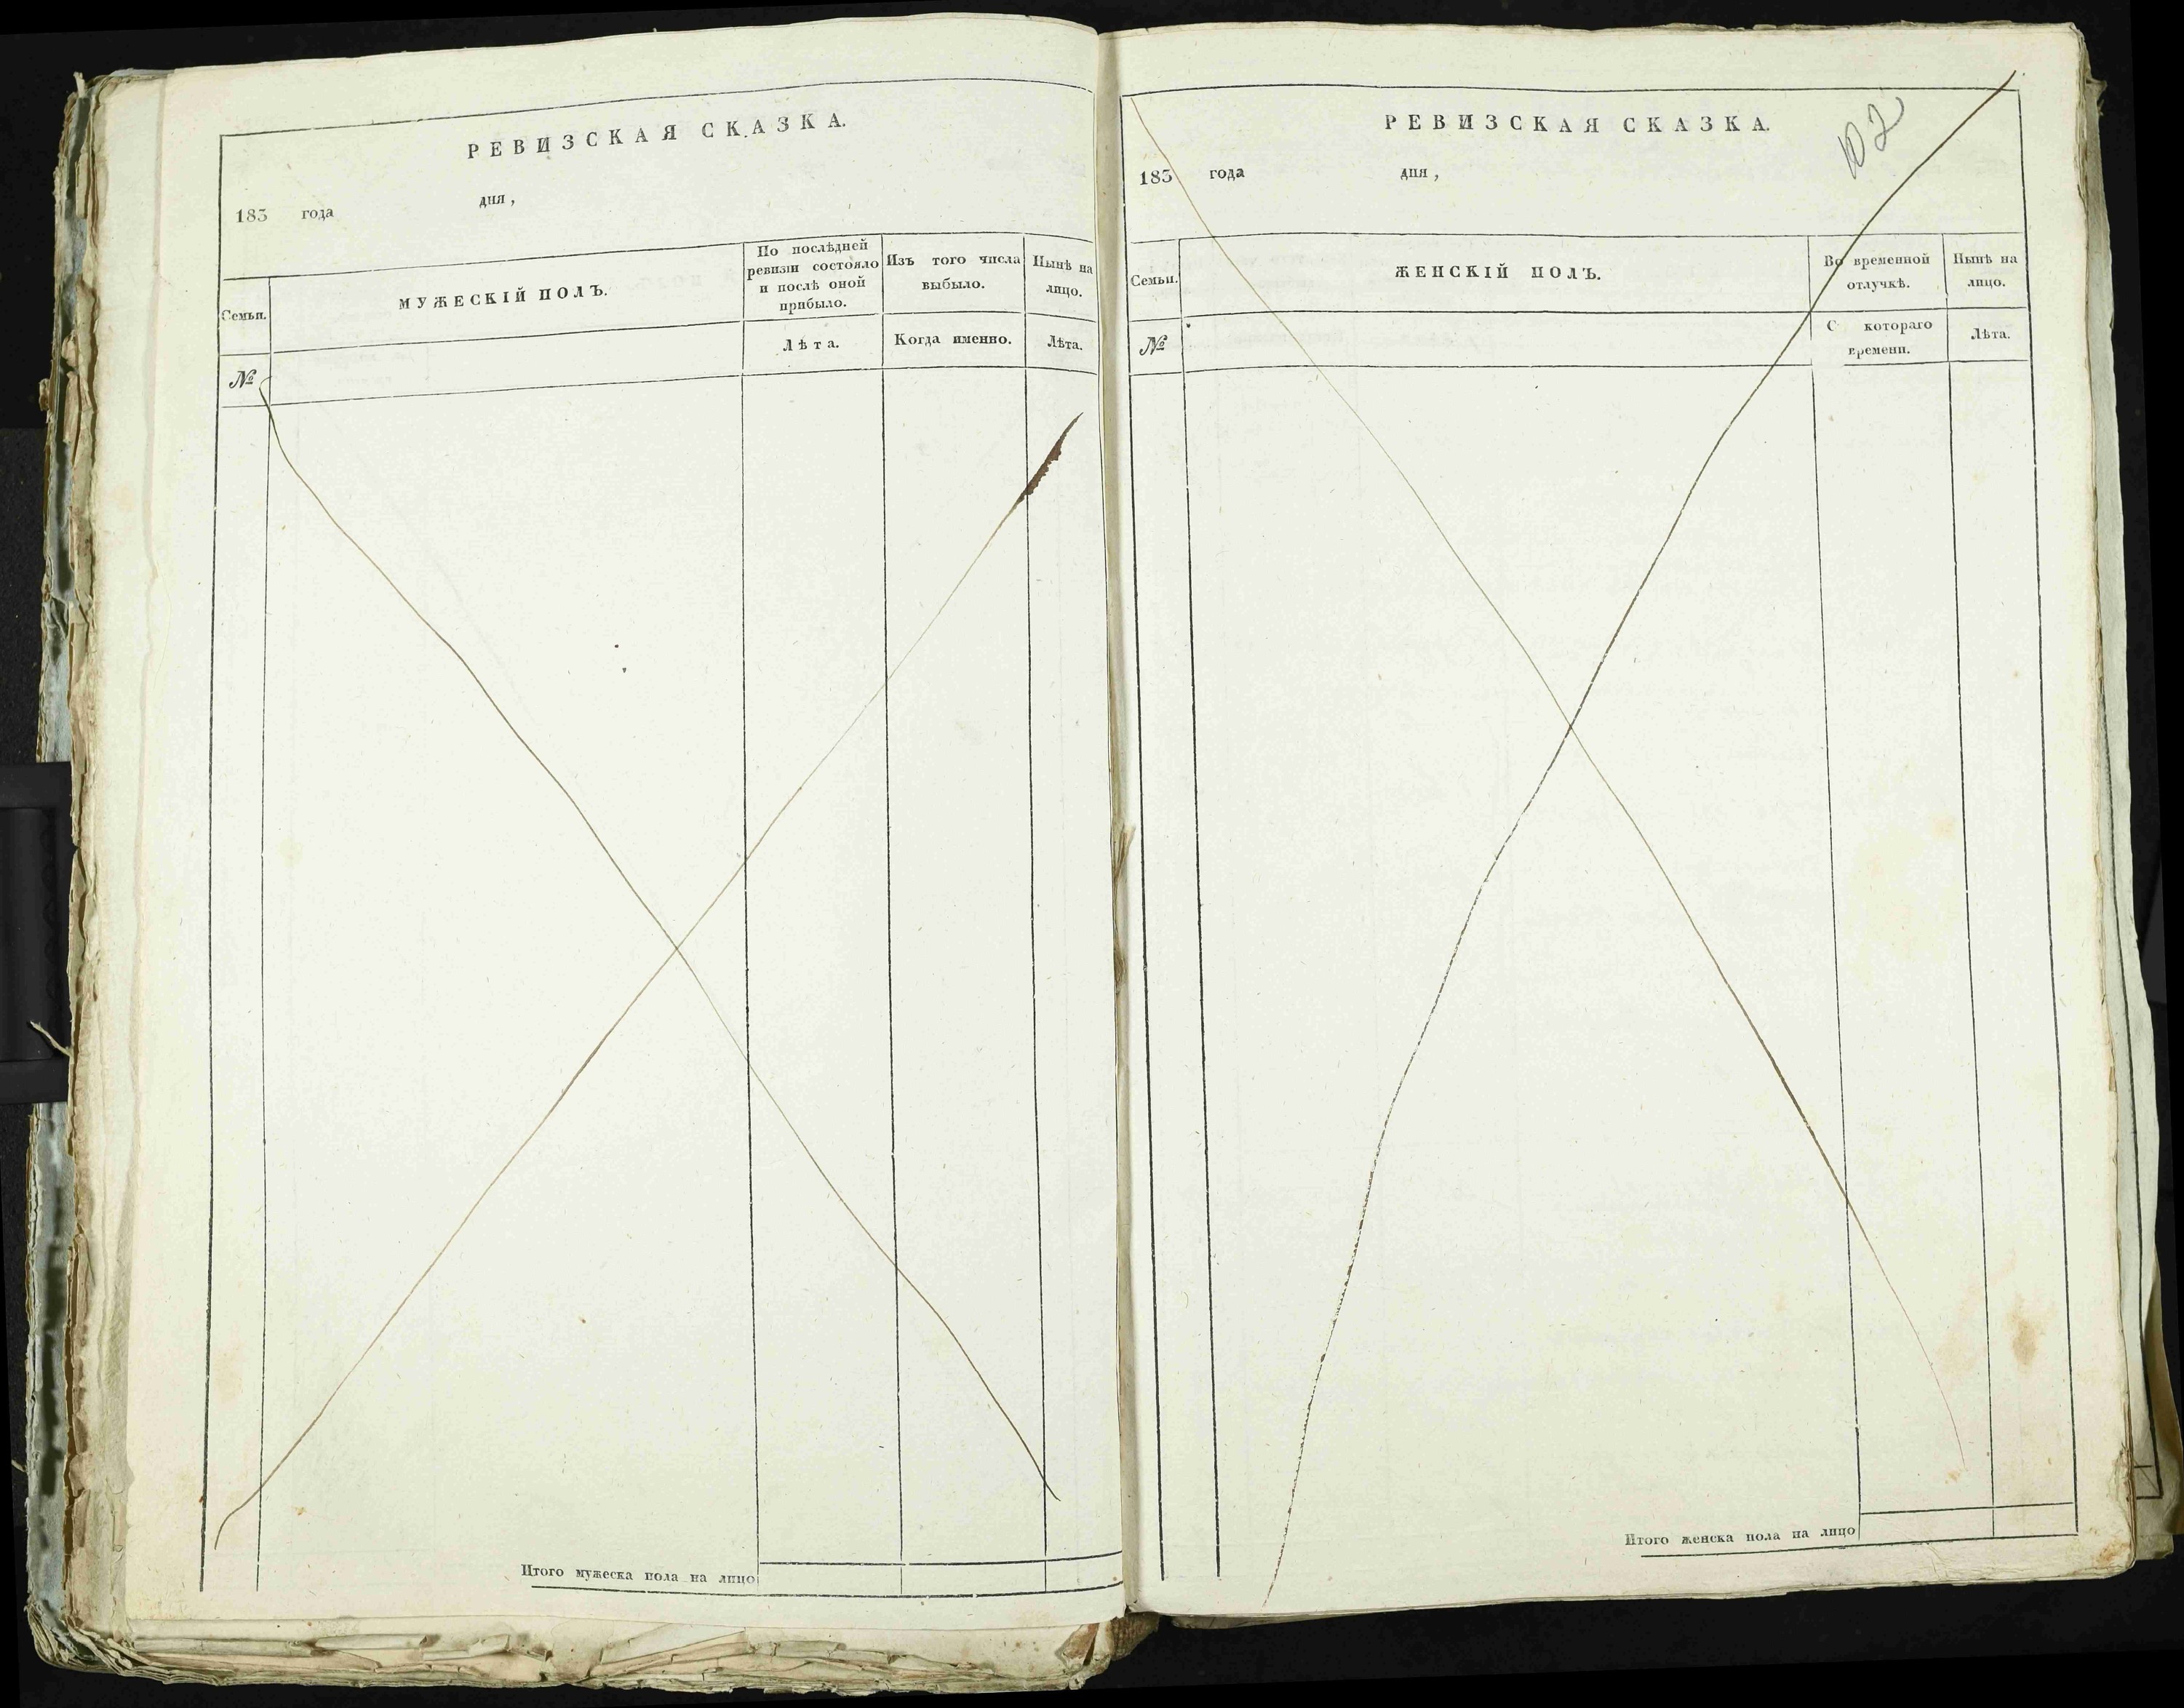 РЕВИЗСКАЯ СКАЗКА.
183 года дня,
Семьи.
№
МУЖЕСКІЙ ПОЛЪ.
По послѣдней
ревизіи состояло
и послѣ оной
прибыло.
Лѣта.
Изъ того числа
выбыло.
Когда именно.
Нынѣ на
лицо.
Лѣта.
Итого мужеска пола на лицо
102
РЕВИЗСКАЯ СКАЗКА.
183 года дня,
Семьи.
№
ЖЕНСКІЙ ПОЛЪ.
Во временной
отлучкѣ.
С котораго
времени.
Нынѣ на
лицо.
Лѣта.
Итого женска пола на лицо